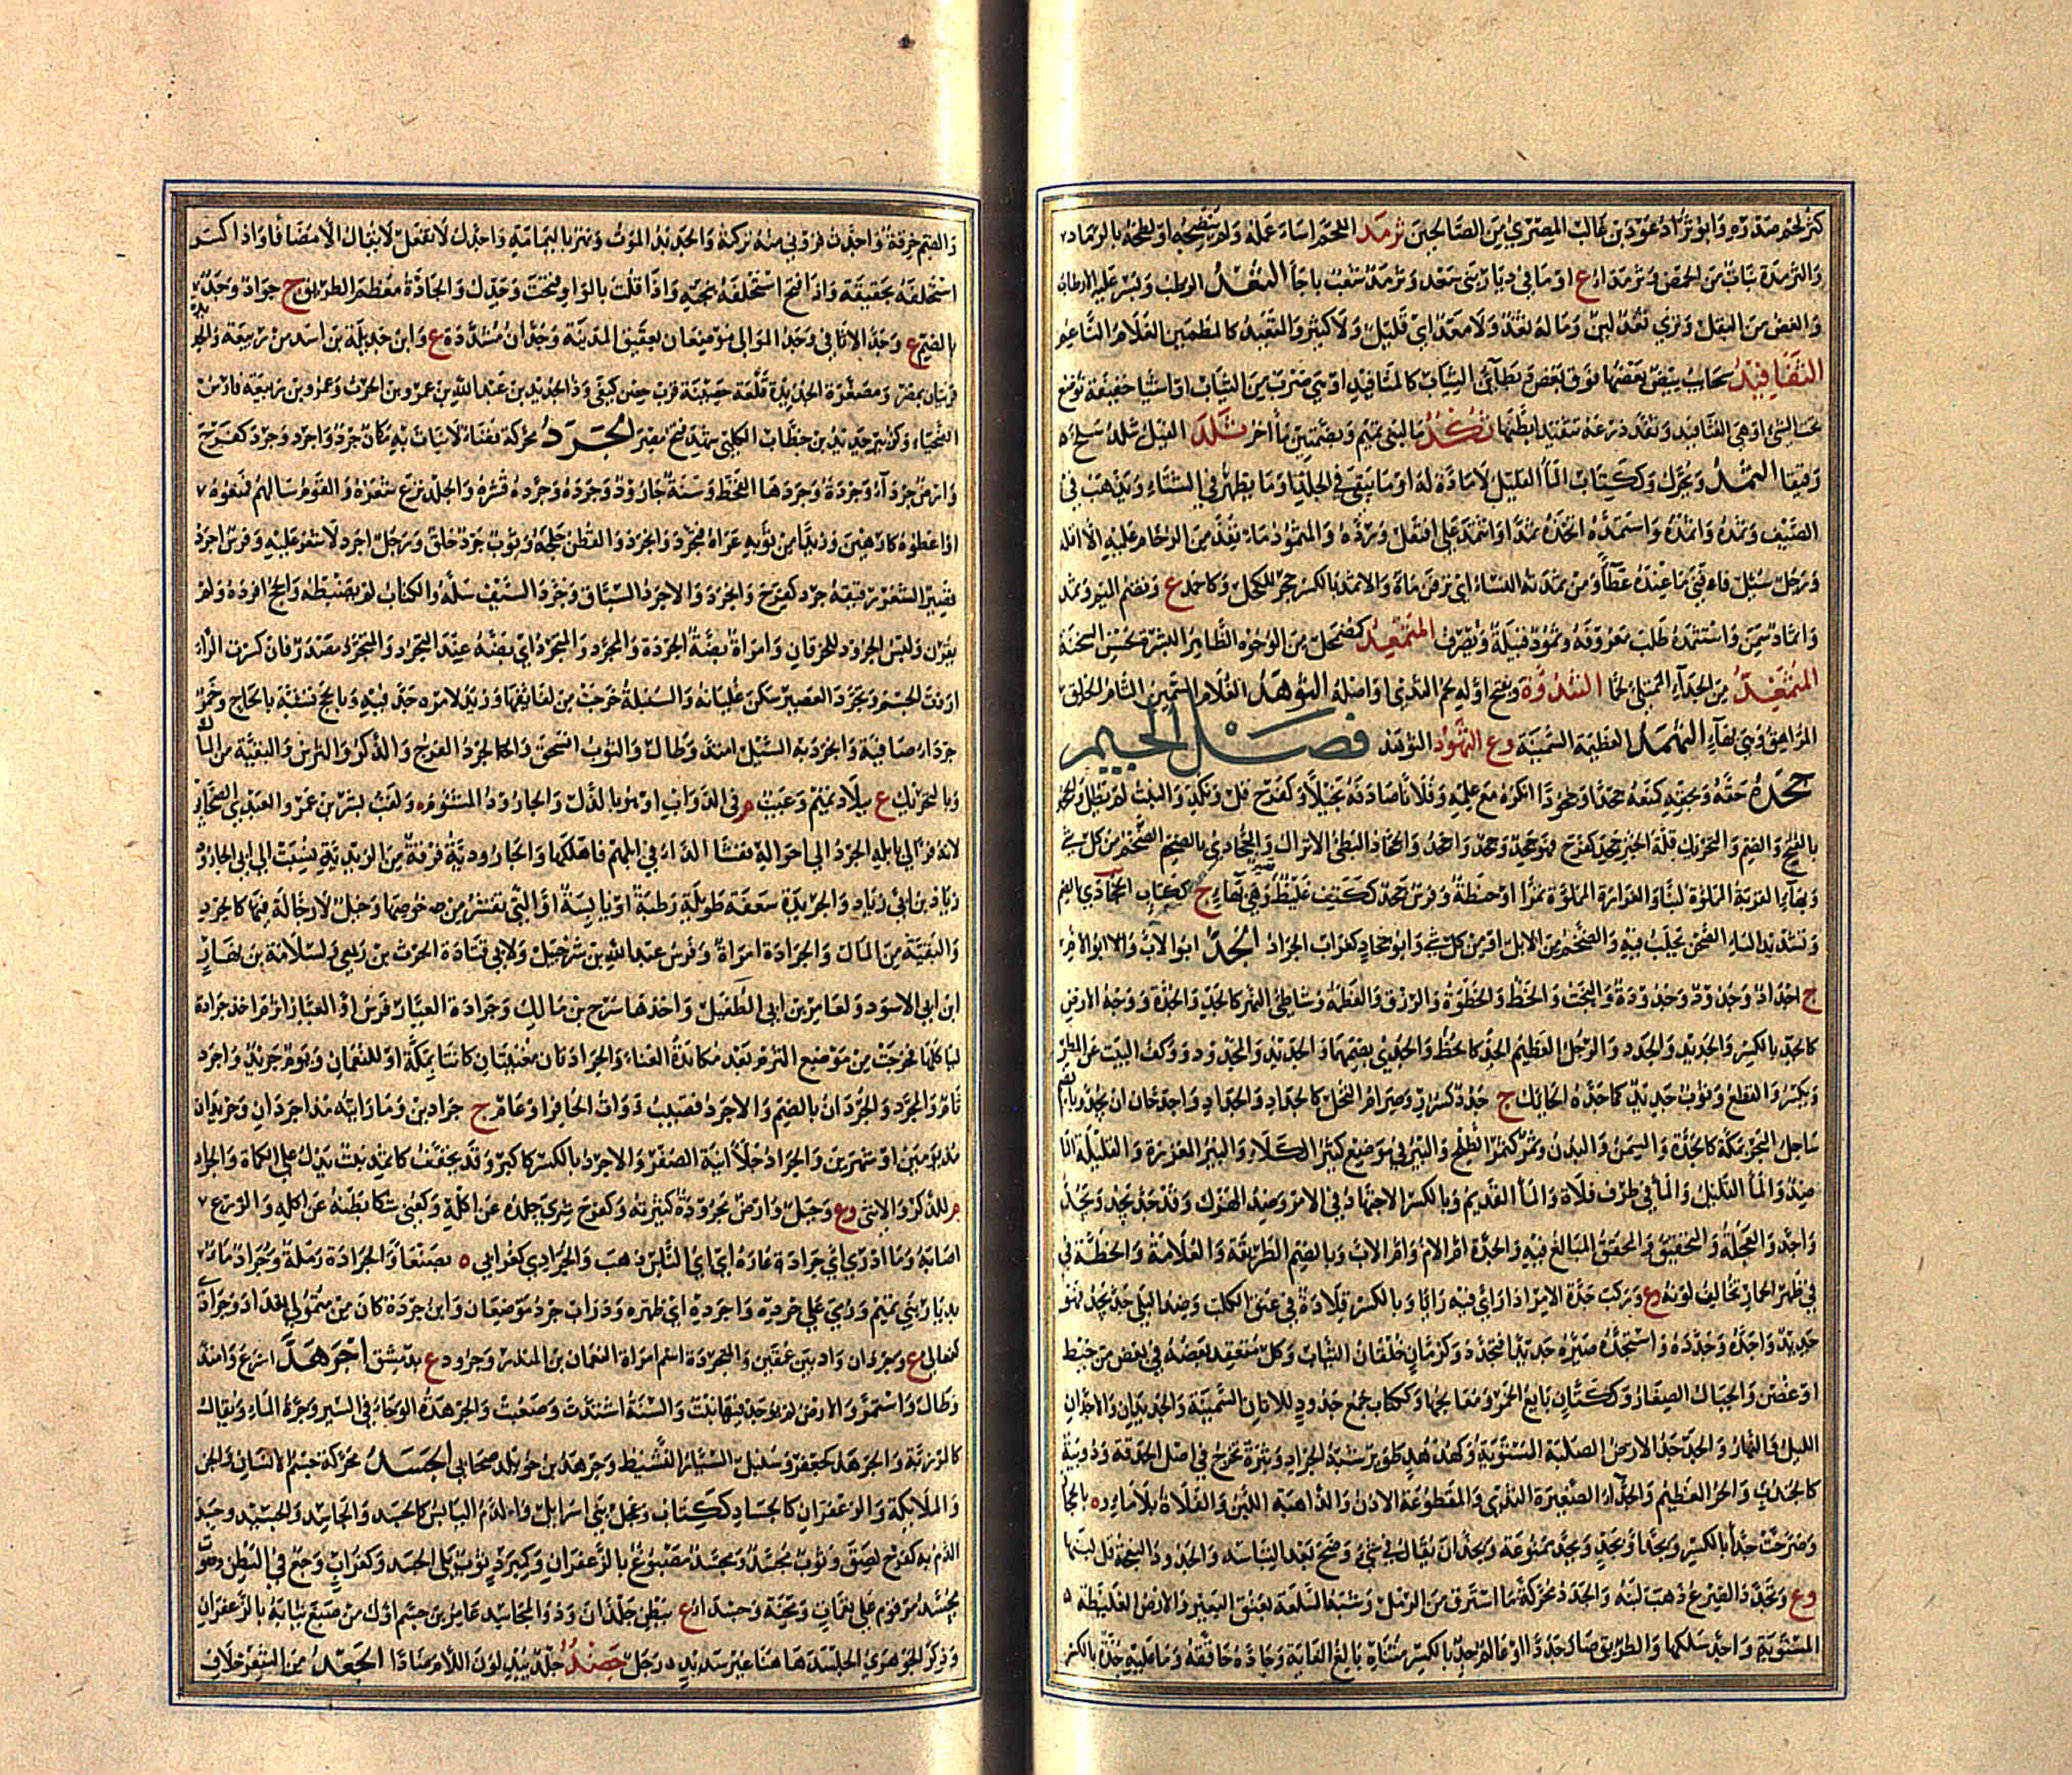 كثر لحم صدره وابو ثراد عوذ بن غالب المصري من الصالحين ثرمد اللحم اساء عمله ولم ينضجه او لطخه بالرماد
والثرمدة نبات من الحمض وثرمداء ع او ماء في ديار بني سعد وثرمد شعب باجأ الثعد الرطب وبسر غلبه الارطاب
والغض من البقل وثرى ثعد لين وما له ثعد ولا معد اي قليل ولا كثير والمثعئد كالمطمئن الغلام الناعم
الثفافيد سحاب بيض بعضها فوق بعض وبطائن الثياب كالمثافيد او هي ضرب من الثياب او اشيا خفيفة توضع
تحت الشيء او هي الفثافيد وثفد درعه تثفيدا بطنها ثكد ماء لبني تميم وبضمتين ماء آخر ثلد الفيل ثلد سلح
رقيقا الثمد ويحرك وككتاب الماء القليل لا مادة له او ما يبقى في الجلد او ما يظهر في الشتاء ويذهب في
الصيف وثمده واثمده واستثمده اتخذه ثمدا واثتمد على افتعل ورده والمثمود ماء نفد من الزحام عليه الا اقله
ورجل سئل فافني ما عنده عطاء ومن ثمدته النساء اي نزفن ماءه والاثمد بالكسر حجر للكحل وكاحمد ع ويضم الميم وثمد
واثماد سمن واستثمده طلب معروفه وثمود قبيلة ويصرف المثمعد كمضمحل من الوجوه الظاهر البشرة الحسن السحنة
المثمغد من الجداء الممتلئ شحما الثندوة ويفتح اوله لحم الثدي او اصله الثوهد الغلام السمين التام الخلق
المراهق وهي بهاء الثهمد العظيمة السمينة وع الثهود الثوهد فصل الجيم
جحده حقه وبحقه كمنعه جحدا وجحودا انكره مع علمه وفلانا صادفه بخيلا وكفرح قل ونكد والنبت لم يطل والجحد
بالفتح والضم والتحريك قلة الخير جحد كفرح فهو جحد وجحد واجحد والجحاد البطئ الانزال والجحادي بالضم الضخم من كل شي
وبهاء القربة المملوة لبنا والغرارة المملوة تمرا او حنطة وفرس جحد ككتف غليظ وهي بهاء ج ككتاب الجخادي بالضم
وتشديد الياء الصحن يحلب فيه والضخم من الابل او من كل شي وابو جخاد كغراب الجراد الجد ابو الاب وابو الام
ج اجداد وجدود وجدودة والبخت والحظ والحظوة والرزق والعظمة وشاطئ النهر كالجد والجدة ووجه الارض
كالجد بالكسر والجديد والجدد والرجل العظيم الحظ كالجد والجدي بضمهما والجديد والمجدود ووكف البيت عن المطر
ويكسر والقطع وثوب جديد كما جده الحائك ج جدد كسرر وصرام النخل كالجداد والجداد واجد حان ان يجد وبالضم
ساحل البحر بمكة كالجدة والسمن والبدن وثمر كثمر الطلح والبئر في موضع كثير الكلاء والبئر المغزرة والقليلة الماء
ضد والماء القليل والماء في طرف فلاة والماء القديم وبالكسر الاجتهاد في الامر وضد الهزل وقد جد يجد ويجد
واجد والعجلة والتحقيق والمحقق المبالغ فيه والجدة ام الام وام الاب وبالضم الطريقة والعلامة والخطة في
في ظهر الحمار تخالف لونه وع وركب جدة الامر اذا رأى فيه رايا وبالكسر قلادة في عنق الكلب وضد البلى جد يجد فهو
جديد واجده وجدده واستجده صيره جديدا فتجدد وكرمان خلقان الثياب وكل متعقد بعضه في بعض من خيط
او غصن والجبال الصغار وككتان بايع الخمر ومعالجها وككتاب جمع جدود للاتان السمينة والجديدان والاجدان
الليل والنهار والجدجد الارض الصلبة المستوية وكهدهد طوير شبه الجراد وبثرة تخرج في اصل الحدقة ودويبة
كالجندب والحر العظيم والجداء الصغيرة الثدي والمقطوعة الاذن والذاهبة اللبن والفلاة بلا ماء وه بالحجاز
وصرحت جدا بالكسر وبجدا وبجد وبجد ممنوعة وبجدان يقال في شيء وضح بعد التباسه والجدود النعجة قل لبنها
وع وتجدد الضرع ذهب لبنه والجدد محركة ما استرق من الرمل وشبه السلعة بعنق البعير والارض الغليظة
المستوية واجد سلكها والطريق صار جددا وعالم جد بالكسر متناه بالغ الغاية وجاده حاققه وما عليه جدة بالكسر
والضم خرقة واجدت قروني منه تركته والجديد الموت ونهر باليمامة واجدك لا تفعل لا يقال الا مضافا واذا كسر
استحلفه بحقيقته واذا فتح استحلفه ببخته واذا قلت بالواو فتحت وجدك والجادة معظم الطريق ج جواد وجد
بالضم ع وجد الاثافي وجد الموالي موضعان بعقيق المدينة وجدان مشددة ع وابن جديلة بن اسد من ربيعة والجد
قريتان بمصر ومصغرة الجديدة قلعة حصينة قرب حصن كيفى وذ الجديد بن عبد الله بن عمرو بن الحرث وعمرو بن ربيعة فارس
الضحياء وكزبير جديد بن خطاب الكلبي شهد فتح مصر الجرد محركة فضاء لا نبات به مكان جرد واجرد وجرد كفرح
وارض جرداء وجردة وجردها القحط وسنة جارود وجرده وجرده قشره والجلد نزع شعره والقوم سألهم فمنعوه
او اعطوه كارهين وزيدا من ثوبه عراه فتجرد وانجرد والقطن حلجه وثوب جرد خلق ورجل اجرد لا شعر عليه وفرس اجرد
قصير الشعر رقيقه جرد كفرح وانجرد والاجرد السباق وجرد السيف سله والكتاب لم يضبطه والحج افرده ولم
يقرن ولبس الجرود للخرقان وامراة بضة الجردة والمجرد والمتجرد اي بضة عند التجرد والمتجرد مصدر فان كسرت الراء
اردت الجسم وتجرد العصير سكن غليانه والسنبلة خرجت من لفائفها وزيد لامره جد فيه وبالحج تشبه بالحاج وخمر
جرداء صافية وانجرد به السيل امتد وطال والثوب انسحق والجرد الفرج والذكر والترس والبقية من المال
وبالتحريك ع ببلاد تميم وعيب م في الدواب او هو بالذال والجارود المشئوم ولقب بشر بن عمرو العبدي الصحابي
لانه فر الى ابله الجرد الى اخواله ففشا الداء في ابلهم فاهلكها والجارودية فرقة من الزيدية نسبت الى ابي الجارود
زياد بن ابي زياد والجريدة سعفة طويلة رطبة او يابسة او التي تقشر من خوصها وخيل لا رجالة فيها كالجرد
والبقية من المال والجرادة امراة وفرس عبد الله بن شرحبيل ولابي قتادة الحرث بن ربعي ولسلامة بن نهار
ابن ابي الاسود ولعامر بن ابي الطفيل واخذها سرح بن مالك وجرادة العيار فرس او العيار اثرم اخذ جرادة
لياكلها فخرجت من موضع الثرم بعد مكابدة العناء والجرادتان مغنيتان كانتا بمكة او للنعمان ويوم جريد واجرد
تام والمجرد والجردان بالضم والاجرد قضيب ذوات الحافر او عام ج جرادين وما رايته مذ اجردان وجريدان
مذ يومين او شهرين والجراد جلاء آنية الصفر والاجرد بالكسر كاكبر وقد يخفف كاثمد نبت يدل على الكماة والجراد
م للذكر والانثى وع وجبل وارض مجرودة كثيرته وكفرح شرى جلده عن اكله وكعني شكا بطنه عن اكله والزرع
اصابه وما ادري اي جراد عاره اي اي الناس ذهب والجرادي كغرابي ه بصنعاء والجرادة رملة وجراد ماء
بديار بني تميم ورمي على جرده واجرده اي ظهره ودراب جرد موضعان وابن جردة كان من متمولي بغداد وجرادى
كفعالى ع وجردان واد بين عمقين والمتجردة اسم امراة النعمان بن المنذر وجرود ع بدمشق اجرهد اسرع وامتد
وطال واستمر والارض لم يوجد فيها نبت والسنة اشتدت وصعبت والجرهدة الوحاء في السير وجرة الماء ويقال
كالمرزبة والجرهد كجعفر وسلسل السيار النشيط وجرهد بن خويلد صحابي الجسد محركة جسم الانسان والجن
والملائكة والزعفران كالجساد ككتاب وعجل بني اسرائيل والدم اليابس كالجسد والجاسد والجسيد وجسد
الدم به كفرح لصق وثوب مجسد ومجسد مصبوغ بالزعفران وكمبرد ثوب يلي الجسد وكغراب وجع في البطن وصوت
مجسد مرقوم على نغمات ومحنة وجسداء ع ببطن جلذان وذو المجاسد عامر بن جشم اول من صبغ ثيابه بالزعفران
وذكر الجوهري الجلسد ههنا غير سديد رجل جضد جلد يبدلون اللام ضادا الجعد من الشعر خلاف